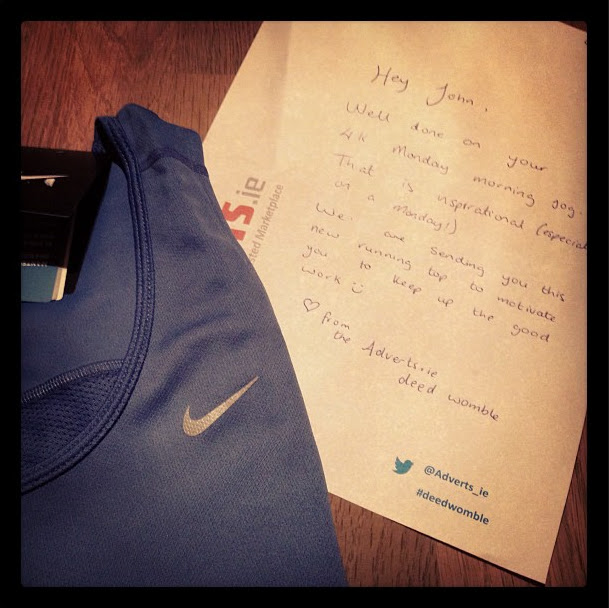 Hey John,
Well done on your
4k Monday morning jog.
That is nspirational (especial
on a Monday!)
We are sending you this
new running top to motivate
you to keep up the good
work
from
the Adverts.ie
deed womble
@Adverts_ie
#deedwomble
s.ie
sted Marketplace